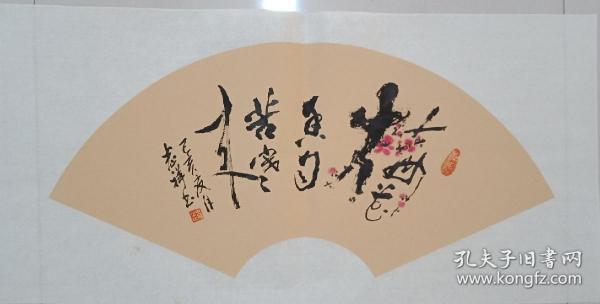 梅花
香自
苦寒
来
己亥夏月
孔夫子旧书网
www.kongfz.com